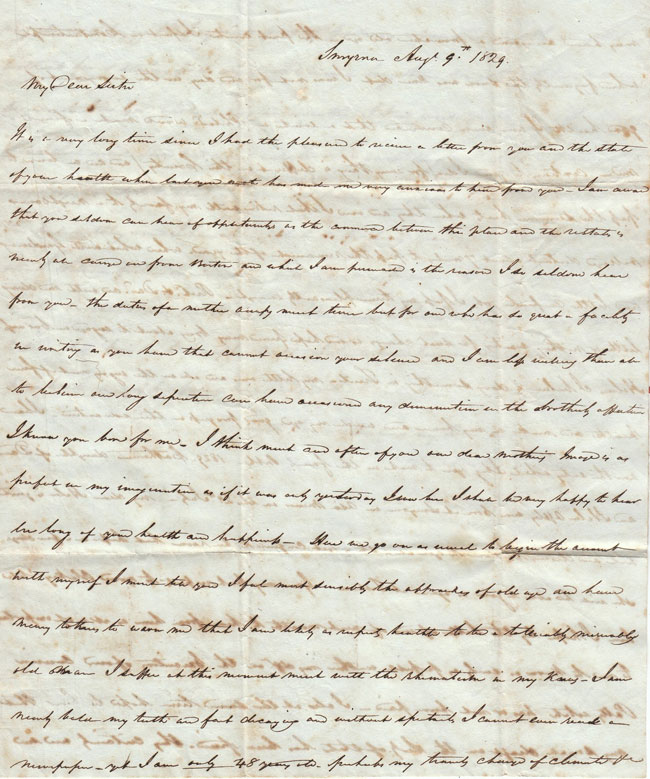 Smyrna Augt. 9th 1829
My Dear Sister
It is a very long time since I had the pleasure to receive a letter from you and the state
of your health when last you wrote has made me very anxious to hear from you – I am aware
that you seldom can hear of opportunities as the commerce between this place and the
nearly all carried on from Boston and which I am persuaded is the reason I so seldom hear
from you – the duties of a mother occupy much time but for one who has so great a facility
in writing as you have that cannot occasion your silence and I am less willing than all
to believe our long seperation can have occasioned any diminution in the affection
I know you bore for me – I think much and often of you our dear mothers Image is as
perfect in my imagination as if it was only yesterday I saw her I shall be very happy to hear
ere long of your health and happiness – Here we go on as usual to begin the account
with myself I must tell you I feel most sensibly the approaches of old age and have
many to warn me that I am likely as respects health to be a tolerably miserable
old man I suffer at this moment much with the rheumatism in my Knees – I am
nearly bald – my teeth are fast decaying and without spectacles I cannot even read a
newspaper – yet I am only 48 years old. perhaps my change of climate &